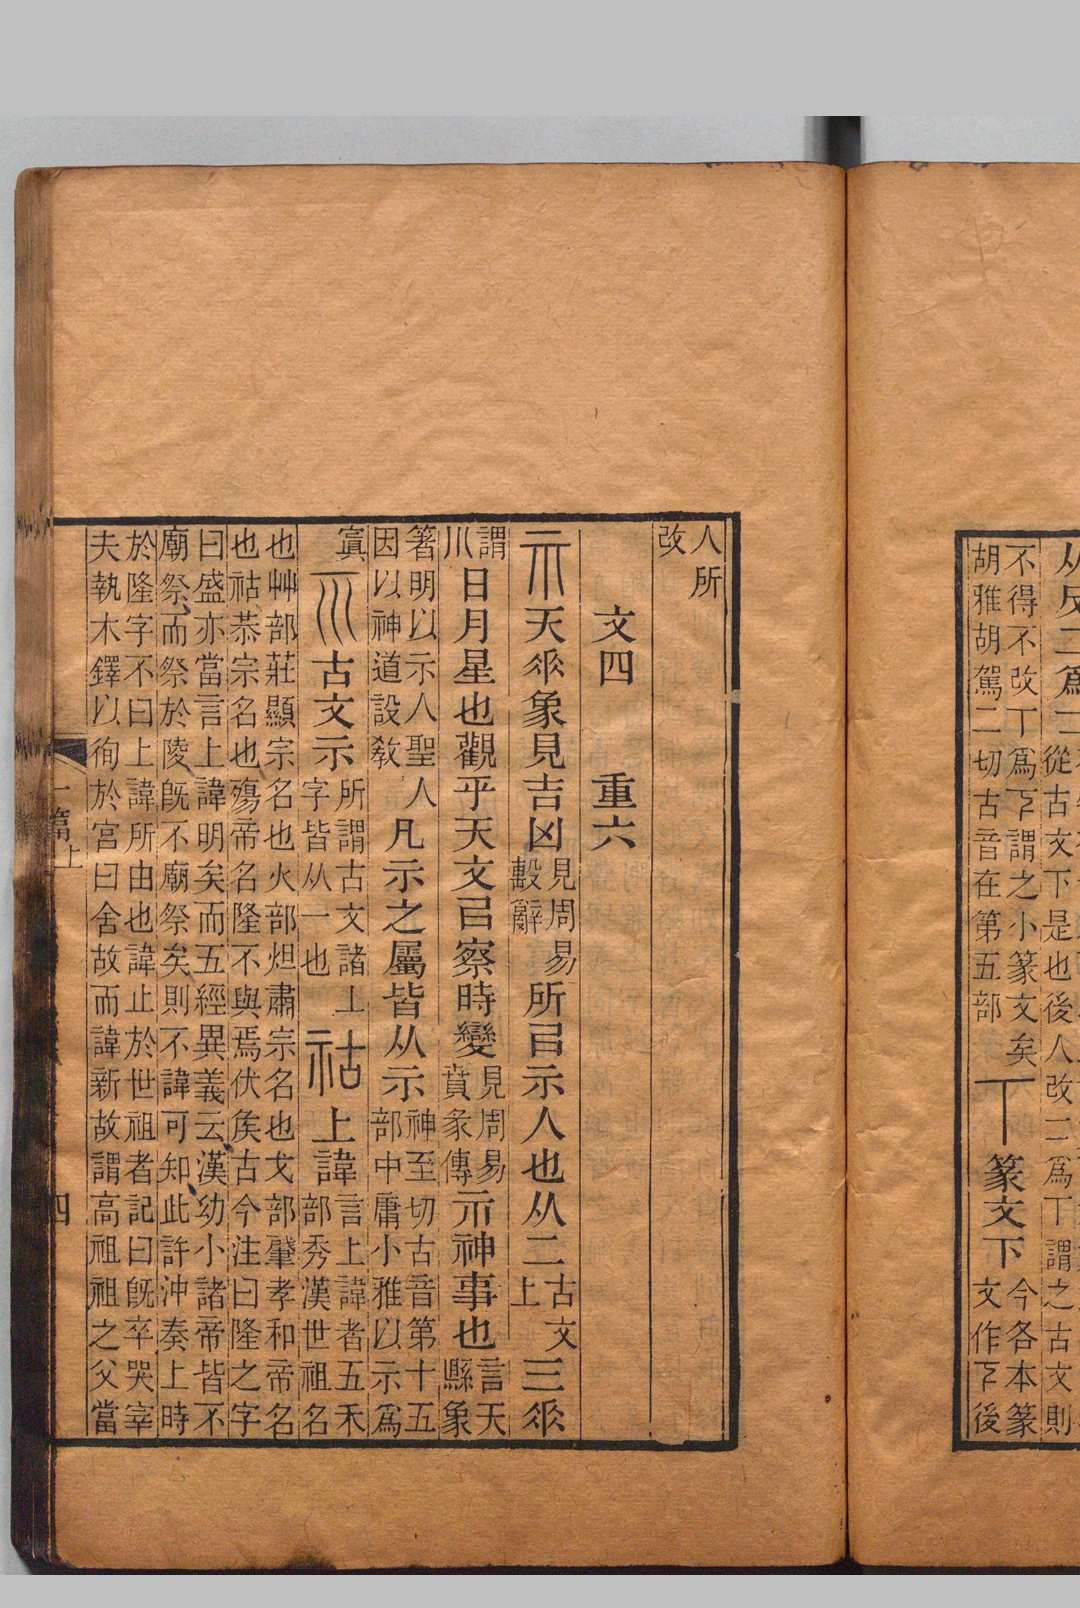 从反二爲二從古文下是也後人改二爲丅謂之古文則
不得不改丅爲𠄟謂之小篆文矣胡雅胡駕二切古音在第五部丅篆文下今各本篆文作𠄟後
人所改
文四 重六
示天𠂹象見吉凶見周易毄辭所㠯示人也从二古文上三𠂹
謂川日月星也觀乎天文㠯察時變見周易賁彖傳示神事也言天縣象
箸明以示人聖人因以神道設敎凡示之屬皆从示神至切古音第十五部中庸小雅以示爲
寘川古文示所謂古文諸丄字皆从一也祜上諱言上諱者五禾部秀漢世祖名
也艸部莊顯宗名也火部炟肅宗名也戈部肈孝和帝名
也祜恭宗名也殤帝名隆不與焉伏矦古今注曰隆之字
曰盛亦當言上諱明矣而五經異義云漢幼小諸帝皆不
廟祭而祭於陵旣不廟祭矣則不諱可知此許沖奏上時
於隆字不曰上諱所由也諱止於世祖者記曰旣卒哭宰
夫執木鐸以徇於宮曰舍故而諱新故謂高祖祖之父當
一篇上 四